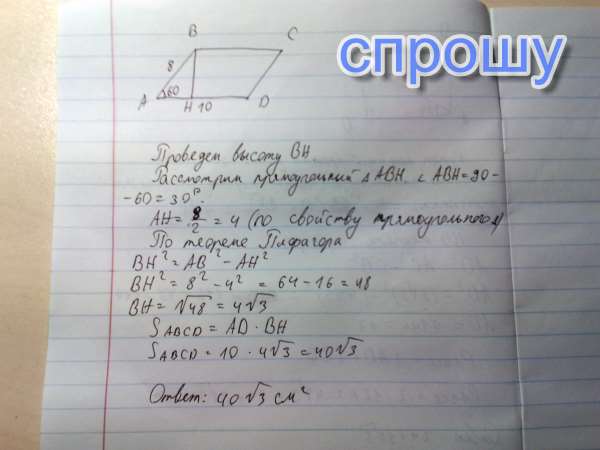 B C
спрошу
8
A 60 H 10 D
Проведем высоту BH.
Рассмотрим прямоугольный Δ ABH. ∠ ABH = 90 -
- 60 = 30°.
AH = 8/2 = 4 (по свойству прямоугольного Δ)
По теореме Пифагора
BH² = AB² - AH²
BH² = 8² - 4² = 64 - 16 = 48
BH = √48 = 4√3
S ABCD = AD · BH
S ABCD = 10 · 4√3 = 40√3
Ответ: 40√3 см²